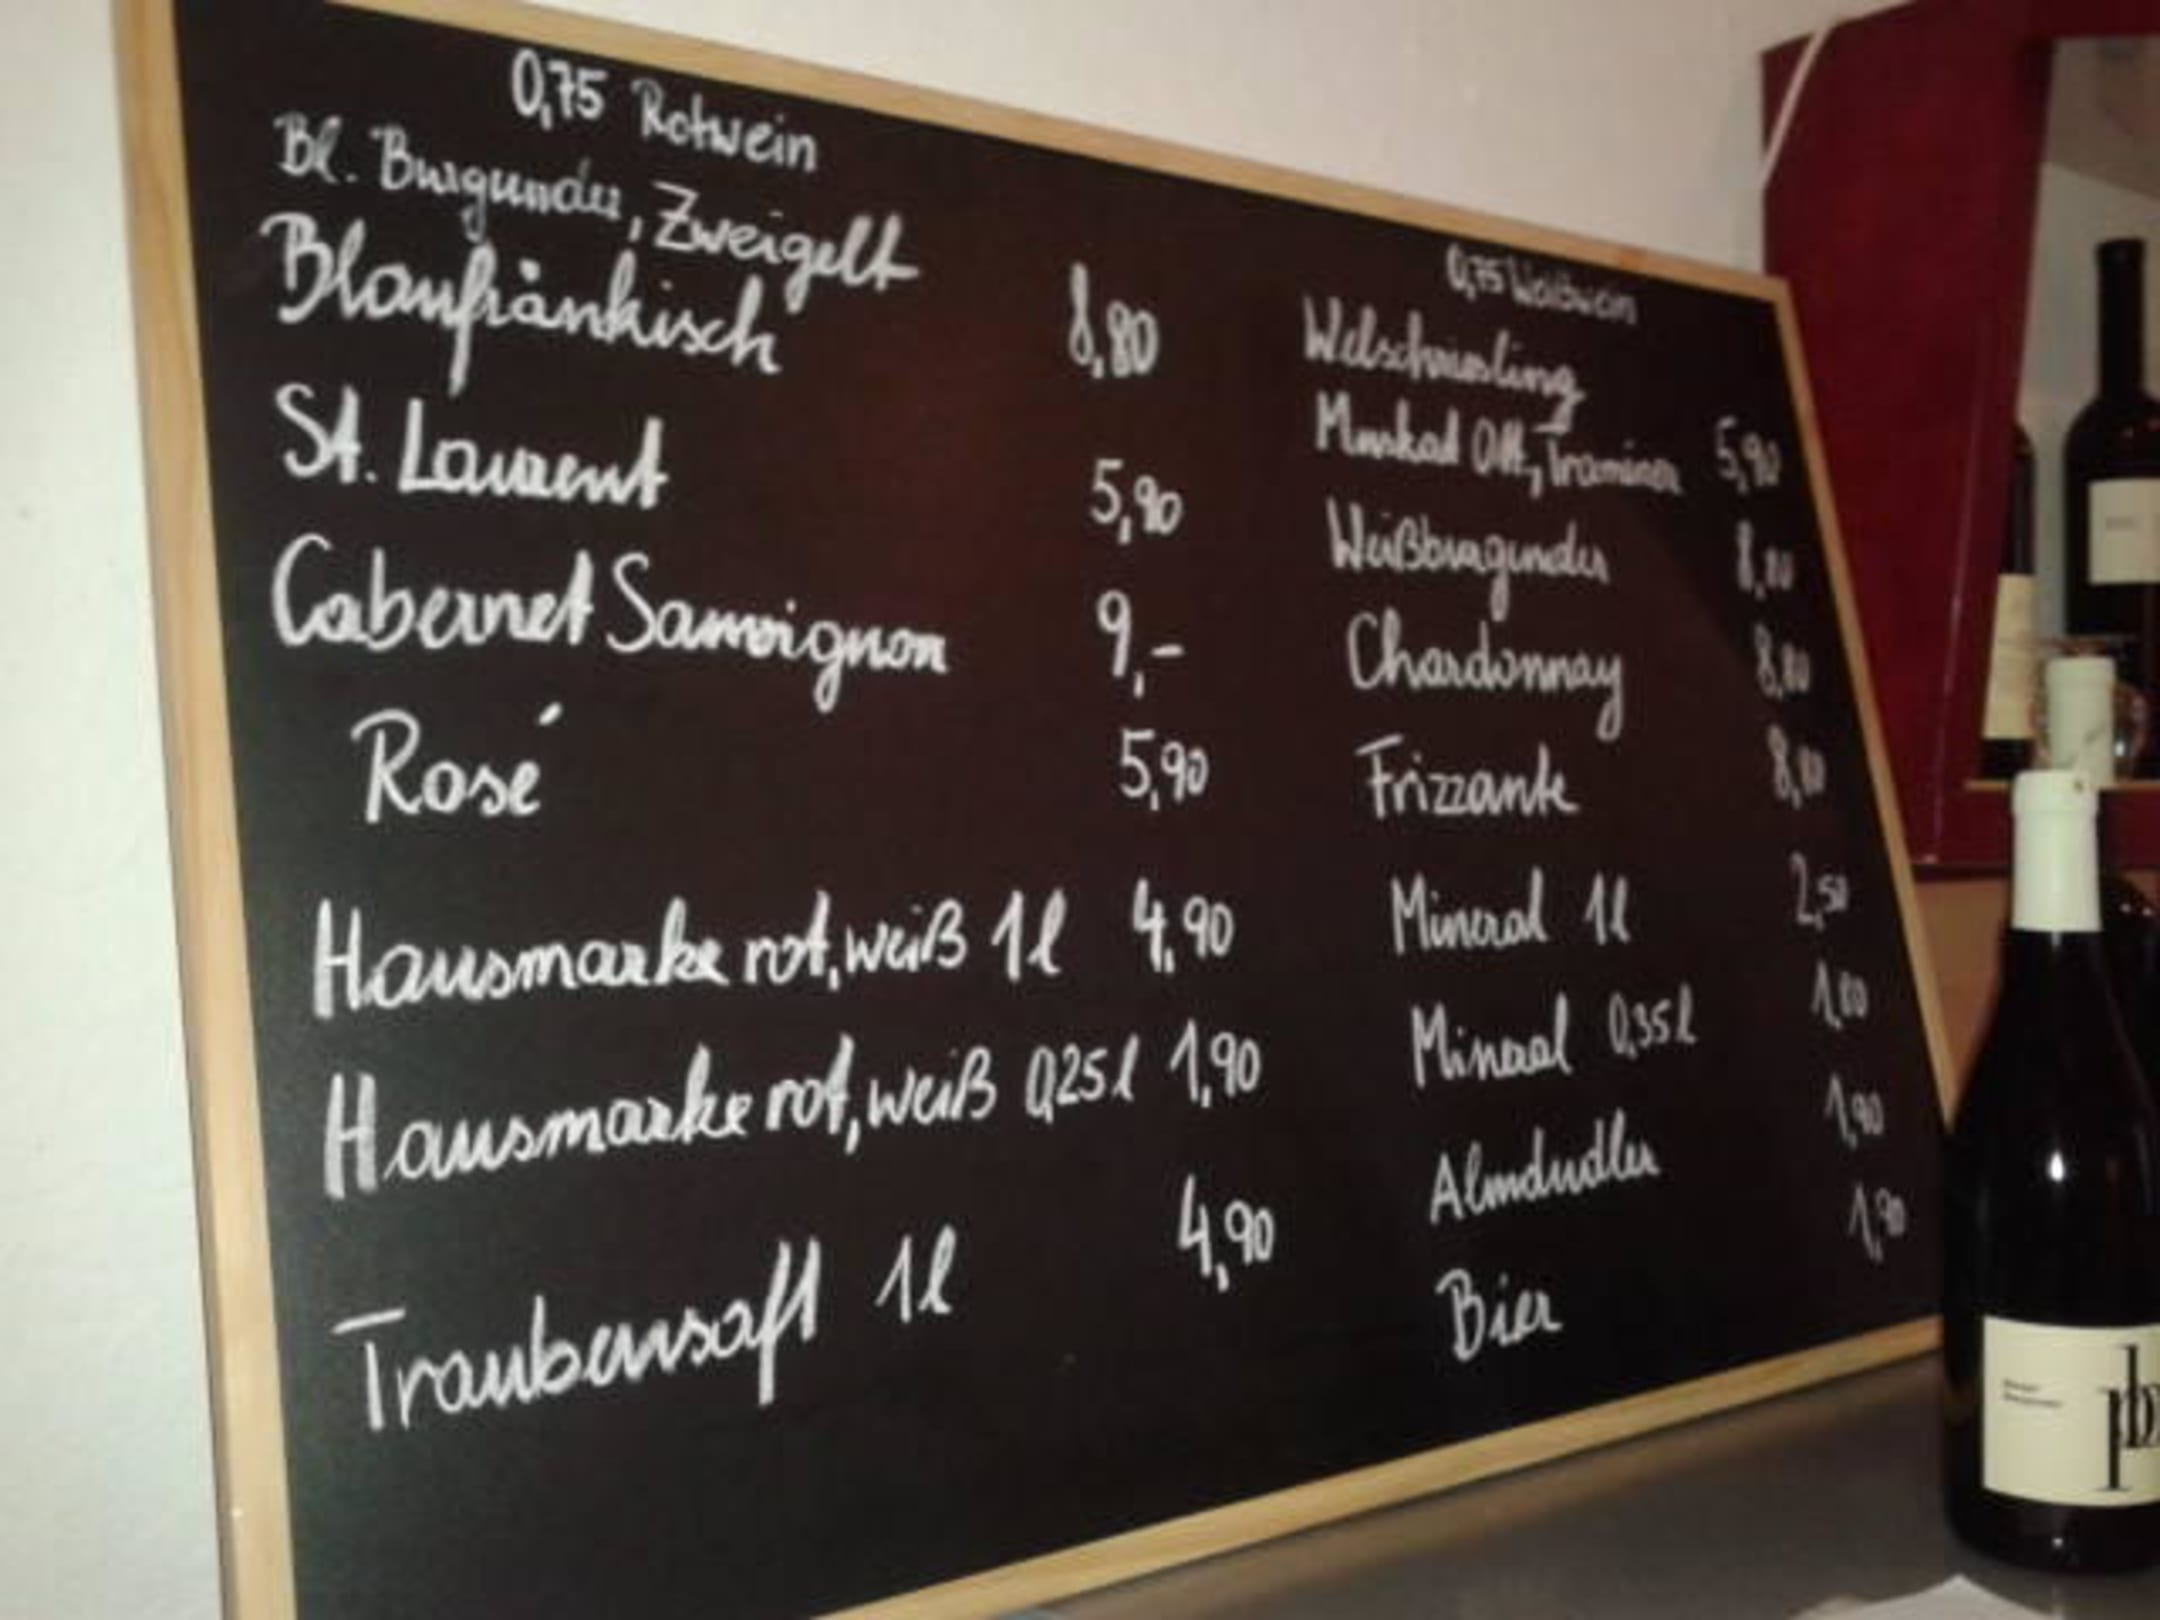 0,75 Rotwein
Bl. Burgunder, Zweigelt
Blaufränkisch 8,80
St. Laurent 5,90
Cabernet Sauvignon 9,-
Rosé 5,90
Hausmarke rot, weiß 1l 4,90
Hausmarke rot, weiß 0,25l 1,90
Traubensaft 1l 4,90
0,75 Weißwein
Welschriesling
Muskat Ott, Traminer 5,90
Weißburgunder 8,80
Chardonnay 8,80
Frizzante 8,80
Mineral 1l 2,50
Mineral 0,35l 1,80
Almdudler 1,90
Bier 1,90